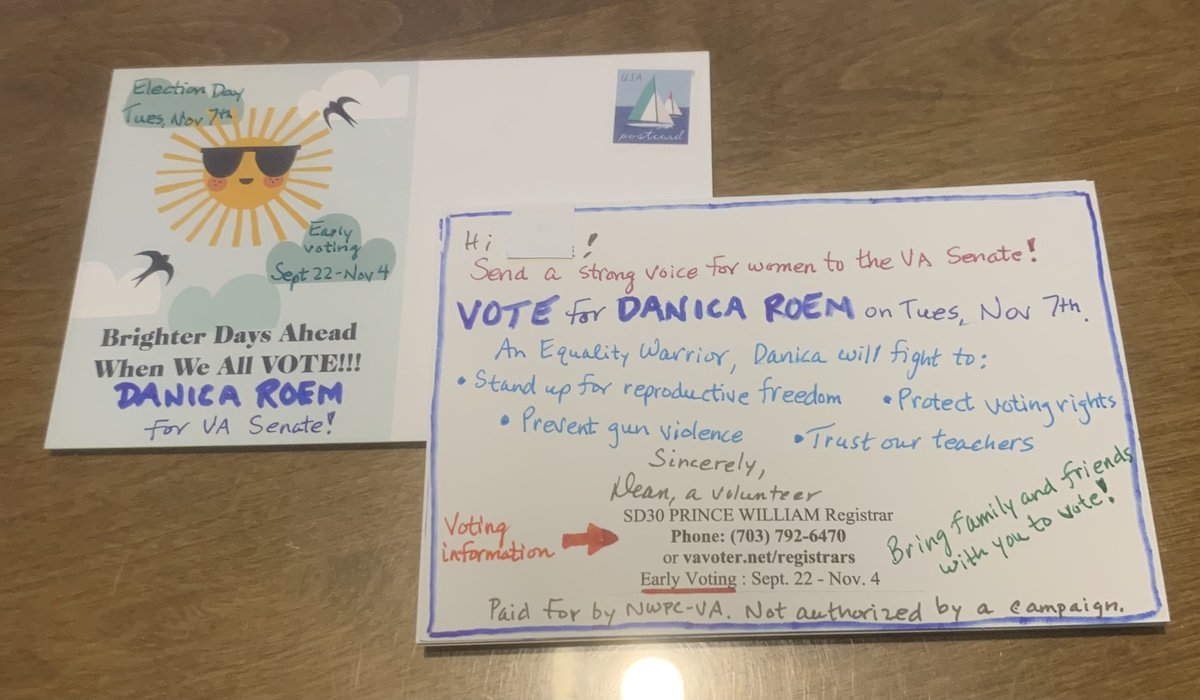 Election Day
Tues, Nov 7th
Early
voting
Sept 22-Nov 4
Brighter Days Ahead
When We All VOTE!!!
DANICA ROEM
for VA Senate!
USA
postcard
Hi !
Send a strong voice for women to the VA Senate!
VOTE for DANICA ROEM on Tues, Nov 7th.
An Equality Warrior, Danica will fight to:
• Stand up for reproductive freedom • Protect voting rights
• Prevent gun violence • Trust our teachers
Sincerely,
Dean, a volunteer
SD30 PRINCE WILLIAM Registrar
Phone: (703) 792-6470
or vavoter.net/registrars
Early Voting : Sept. 22 - Nov. 4
Voting
information
Bring family and friends
with you to vote!
Paid for by NWPC-VA. Not authorized by a campaign.